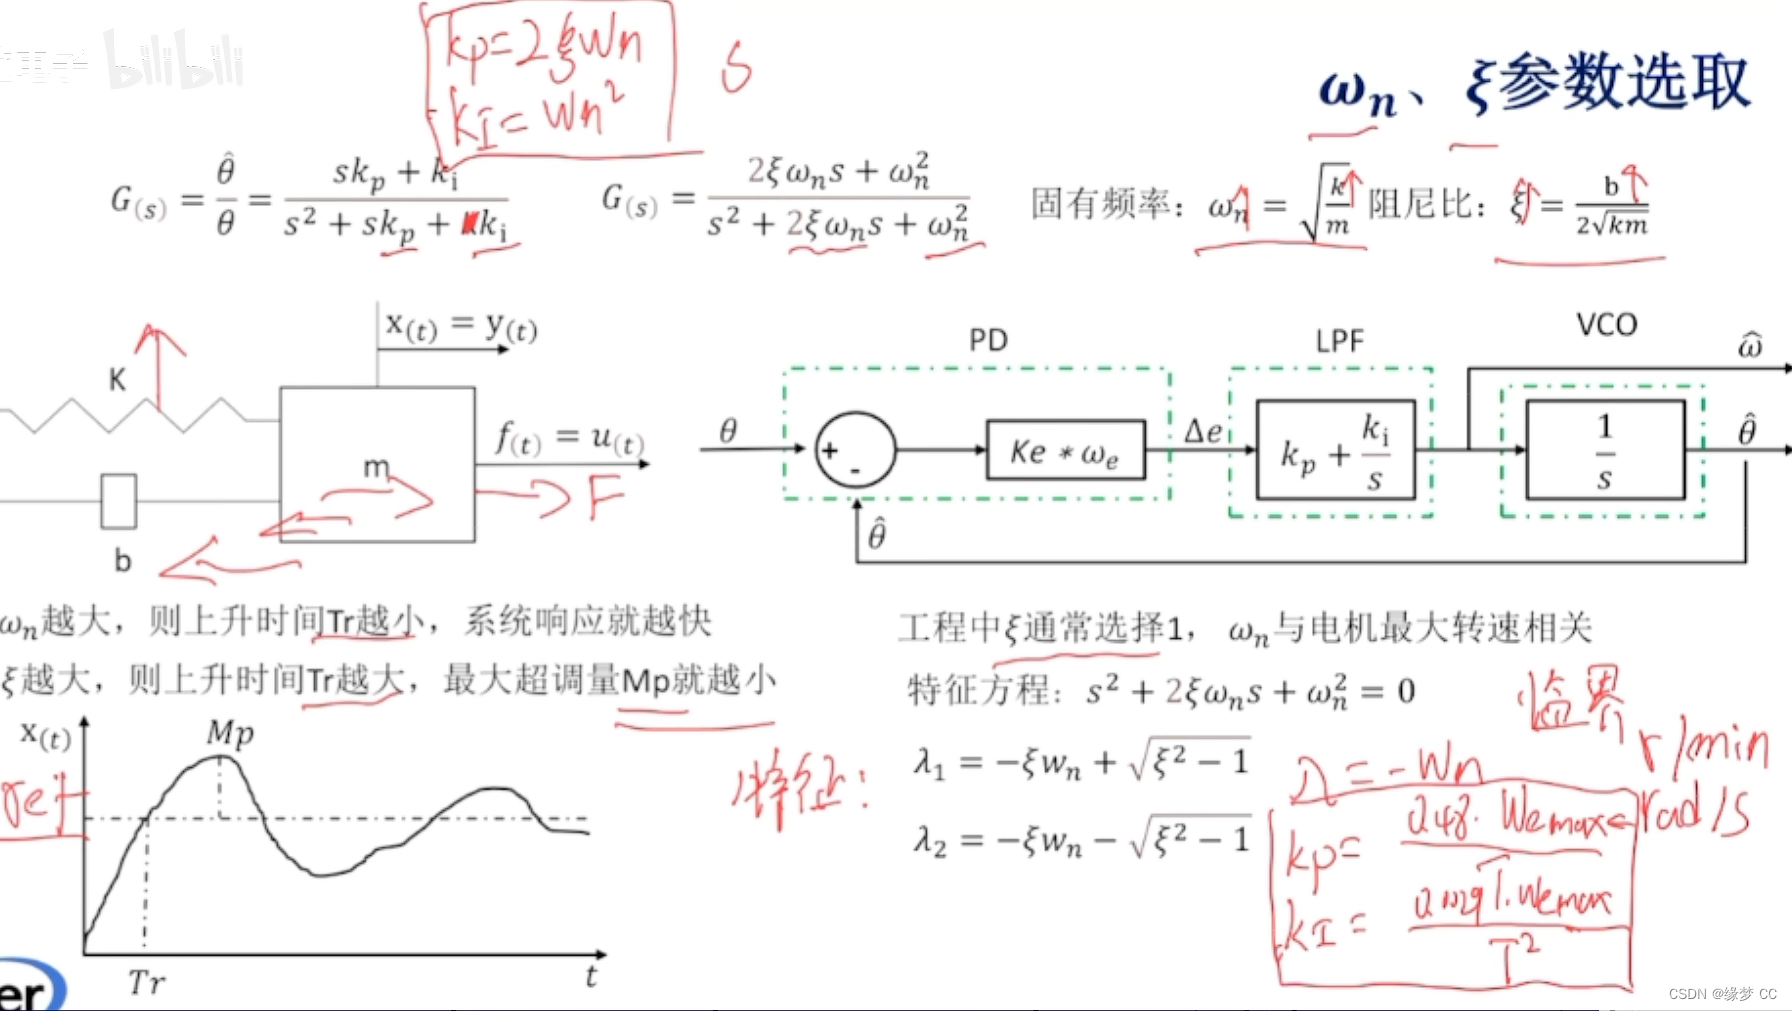 kp=2ξWn
kI=Wn²
bilibili
ωₙ、ξ参数选取
G(s) = θ̂/θ = (skₚ + kᵢ)/(s² + skₚ + kᵢ)
G(s) = (2ξωₙs + ωₙ²)/(s² + 2ξωₙs + ωₙ²)
固有频率：ωₙ = √(k/m) 阻尼比：ξ = b/(2√km)
x(t) = y(t)
K
f(t) = u(t)
m
F
b
PD
LPF
VCO
ω̂
θ
+
-
Ke * ωₑ
Δe
kₚ + kᵢ/s
1/s
θ̂
θ̂
ωₙ越大，则上升时间Tr越小，系统响应就越快
ξ越大，则上升时间Tr越大，最大超调量Mp就越小
工程中ξ通常选择1， ωₙ与电机最大转速相关
特征方程：s² + 2ξωₙs + ωₙ² = 0
临界
λ₁ = −ξwₙ + √(ξ² − 1)
λ₂ = −ξwₙ − √(ξ² − 1)
特征：
λ=-Wn
r/min
rad/s
kp= 0.48·Wemax/T
kI= Wemax/T²
x(t)
Mp
ref
Tr
t
er
CSDN @缘梦 CC